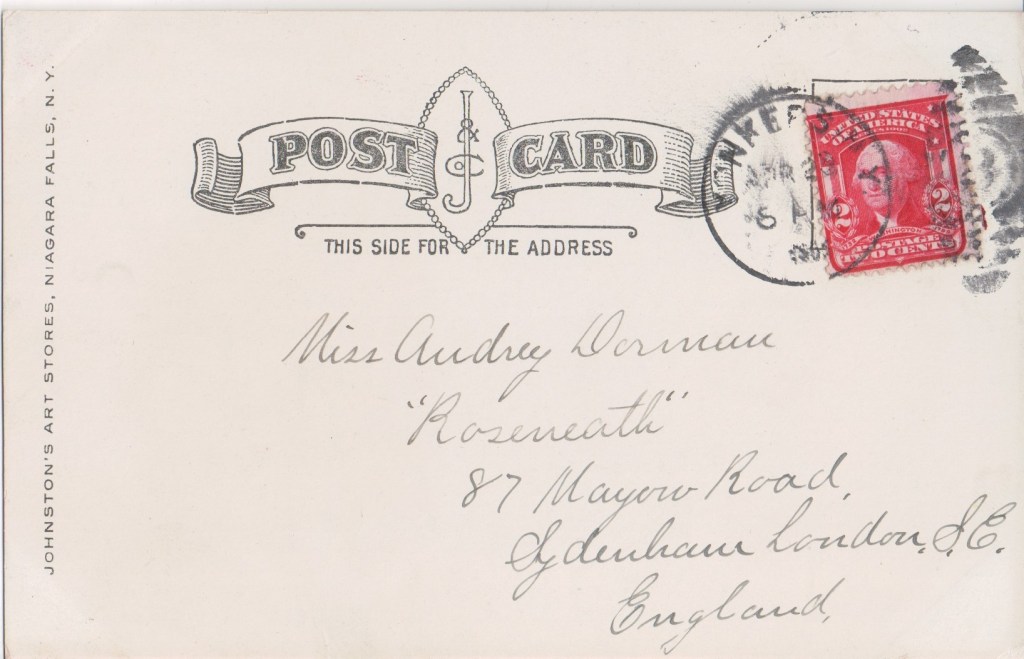 JOHNSTON'S ART STORES, NIAGARA FALLS, N. Y.
POST J & C CARD
THIS SIDE FOR THE ADDRESS
UNITED STATES
OF AMERICA
2 2
POSTAGE
TWO CENTS
Miss Audrey Dorman
"Roseneath"
87 Mayow Road,
Sydenham London, S.E.
England,